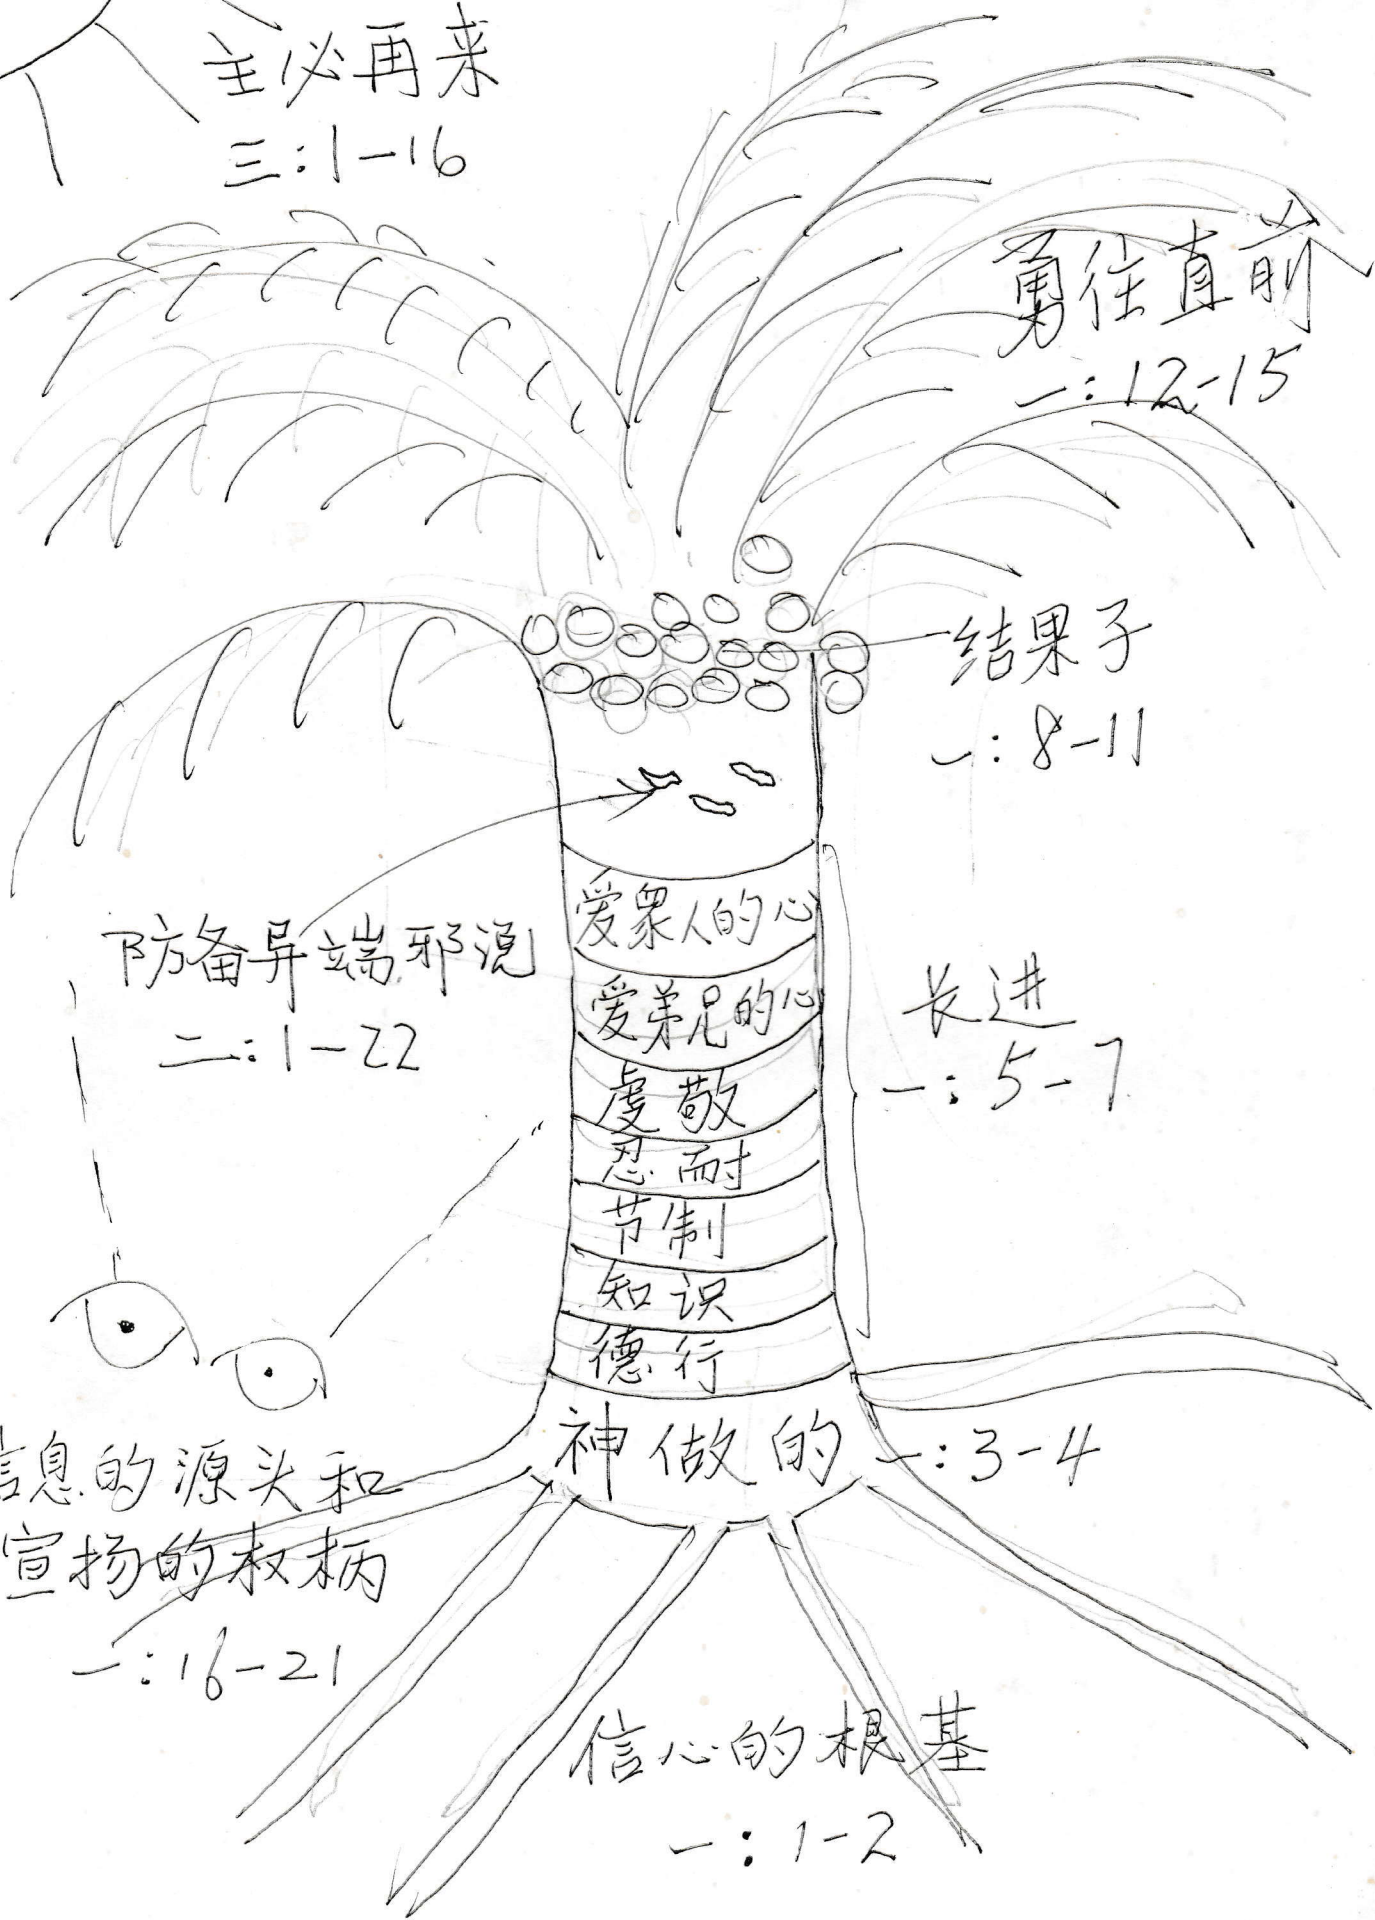 主必再来
三:1-16
勇往直前
一:12-15
结果子
一:8-11
防备异端邪说
二:1-22
爱众人的心
爱弟兄的心
虔敬
忍耐
节制
知识
德行
长进
一:5-7
神做的 一:3-4
信息的源头和
宣扬的权柄
一:16-21
信心的根基
一:1-2